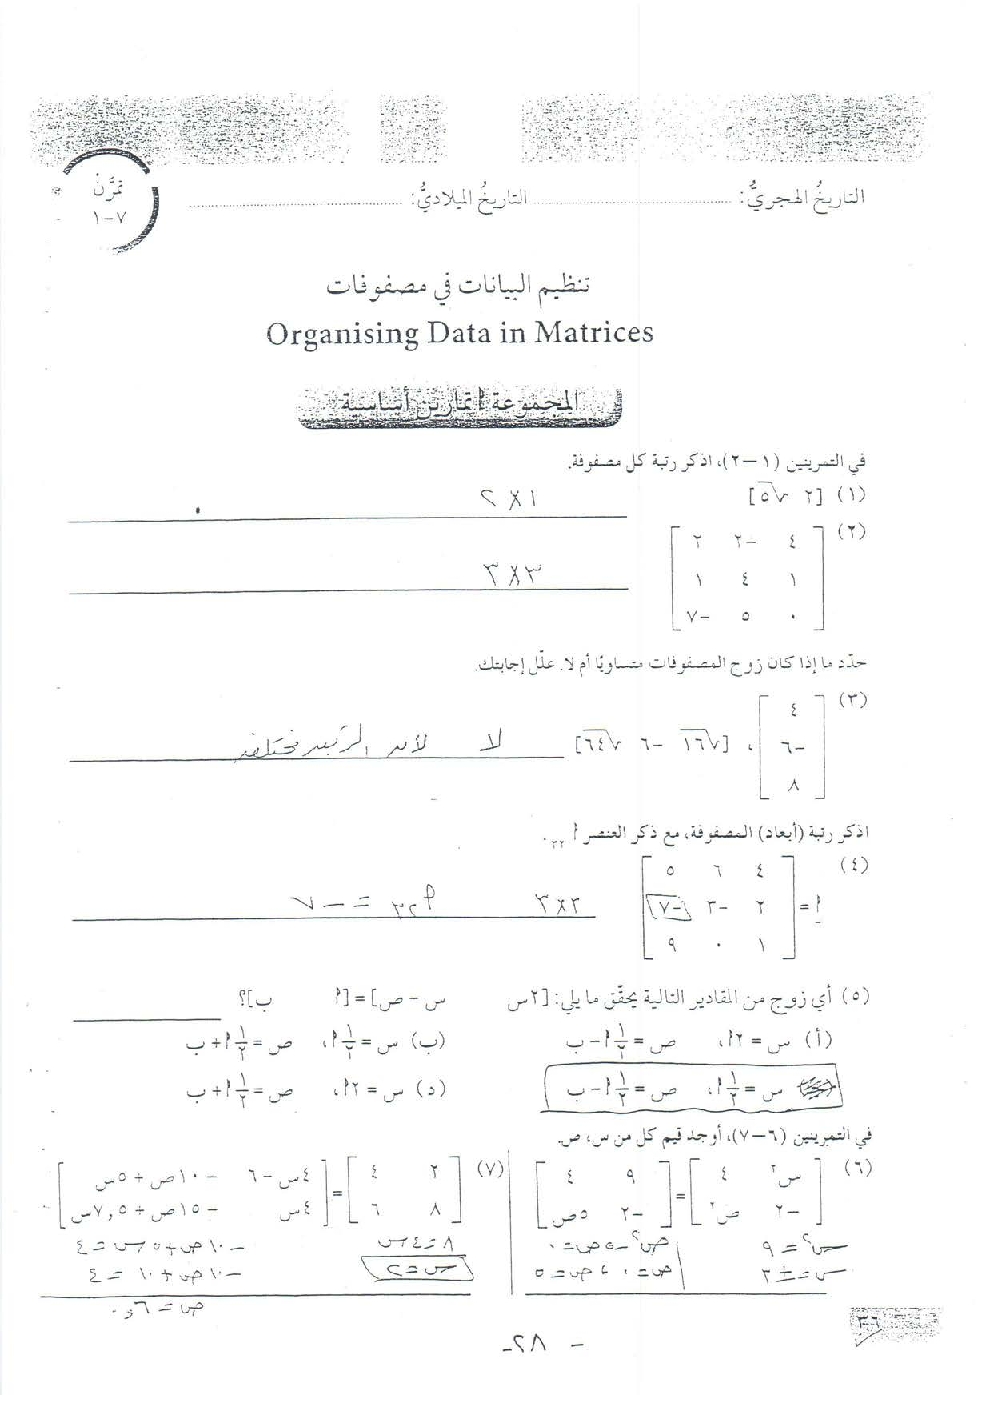 تمرَّنْ
٧-١
التاريخُ الهجريُّ: .................... التاريخُ الميلاديُّ: ....................
تنظيم البيانات في مصفوفات
Organising Data in Matrices
المجموعة أ تمارين أساسية
في التمرينين (١-٢)، اذكر رتبة كل مصفوفة.
(١) [٢ √٥] ١×٢
(٢)
٤ -٢ ٢
١ ٤ ١
٠ ٥ -٧
٣×٣
حدّد ما إذا كان زوج المصفوفات متساويًا أم لا. علّل إجابتك.
(٣)
٤
-٦
٨
، [√١٦ -٦ √٦٤] لا لأن الرتب مختلفة
اذكر رتبة (أبعاد) المصفوفة، مع ذكر العنصر أ٢٣.
(٤)
٤ ٦ ٥
أ = ٢ -٣ -٧
١ ٠ ٩
٣×٣ أ٢٣ = -٧
(٥) أي زوج من المقادير التالية يحقّق ما يلي: [٢س س - ص] = [أ ب]؟
(أ) س = ٢أ، ص = ١/٢ أ - ب (ب) س = ١/٢ أ، ص = ١/٢ أ + ب
س = ١/٢ أ، ص = ١/٢ أ - ب (د) س = ٢أ، ص = ١/٢ أ + ب
في التمرينين (٦-٧)، أوجد قيم كل من س، ص.
(٦)
س٢ ٤ = ٩ ٤
-٢ ص٢ -٢ ٥ص
س٢ = ٩ ص٢ - ٥ص = ٠
س = ±٣ ص = ٠، ص = ٥
(٧)
٢ ٤ = ٤س - ٦ -١٠ص + ٥س
٨ ٦ ٤س -١٥ص + ٧,٥س
٨ = ٤س -١٠ص + ٥س = ٤
س = ٢ -١٠ص + ١٠ = ٤
ص = ٠,٦
٣٦
- ٨٢ -